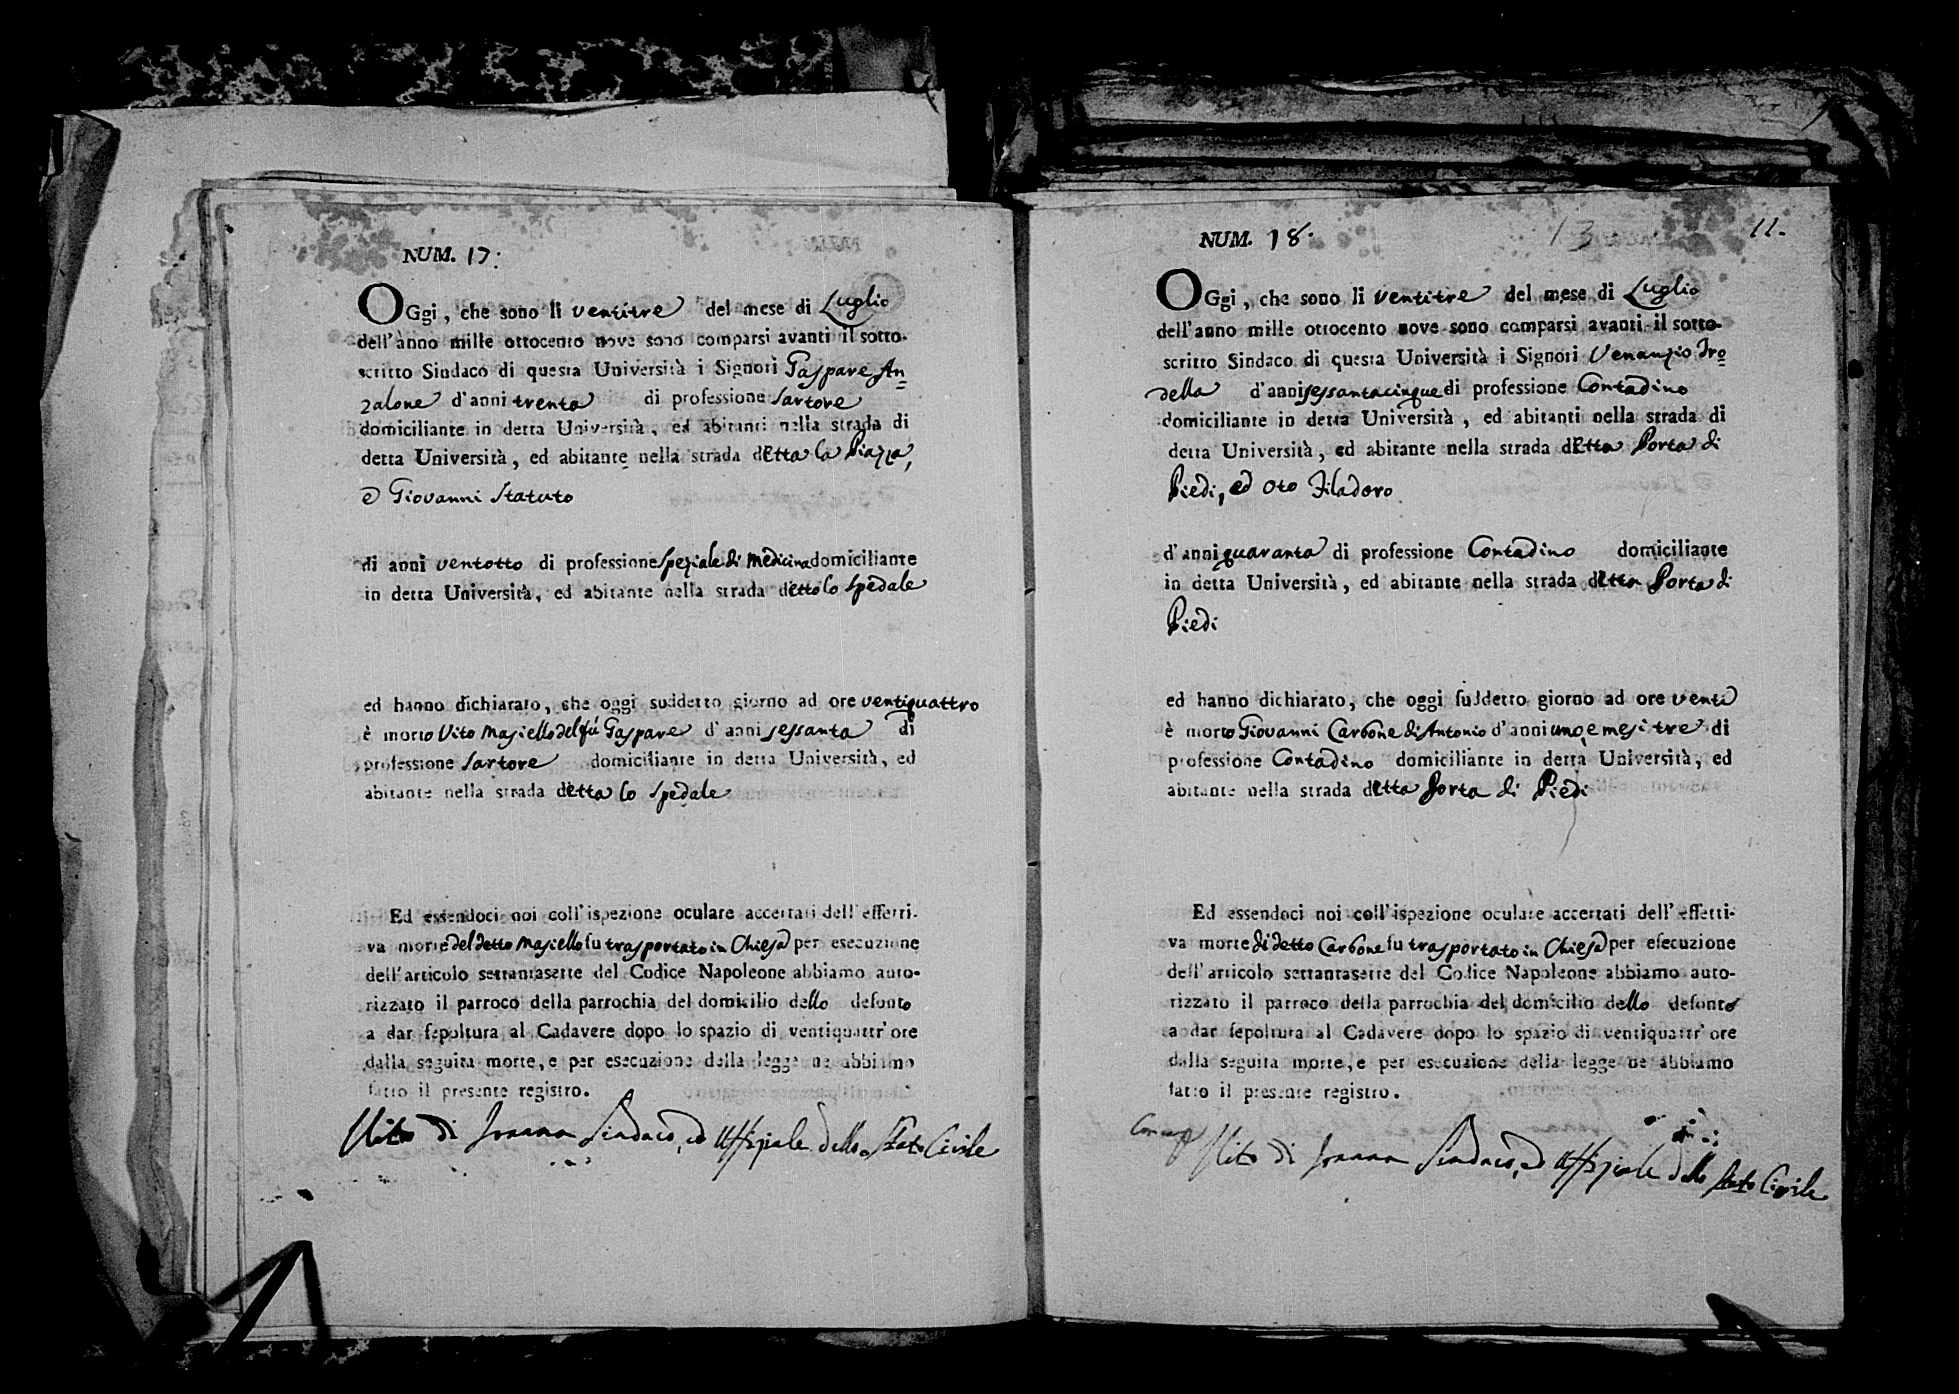 NUM. 17.
OGgi, che sono li ventitre del mese di Luglio
dell'anno mille ottocento nove sono comparsi avanti il sotto-
scritto Sindaco di questa Università i Signori Gaspare An=
zalone d'anni trenta di professione Sartore
domiciliante in detta Università, ed abitanti nella strada di
detta Università, ed abitante nella strada detta la Piazza,
e Giovanni Statuto
di anni ventotto di professione Speziale di Medicina domiciliante
in detta Università, ed abitante nella strada detto lo Spedale
ed hanno dichiarato, che oggi suddetto giorno ad ore ventiquattro
è morto Vito Masiello del fù Gaspare d'anni sessanta di
professione Sartore domiciliante in detta Università, ed
abitante nella strada detta lo Spedale
Ed essendoci noi coll'ispezione oculare accertati dell'effetti-
va morte del detto Masiello fu trasportato in Chiesa per esecuzione
dell'articolo settantasette del Codice Napoleone abbiamo auto-
rizzato il parroco della parrochia del domicilio dello defonto
a dar sepoltura al Cadavere dopo lo spazio di ventiquattr'ore
dalla seguita morte, e per esecuzione della legge ne abbiamo
fatto il presente registro.
Vito di Ioanna Sindaco, ed Uffiziale dello Stato Civile
NUM. 18.
13
11.
OGgi, che sono li ventitre del mese di Luglio
dell'anno mille ottocento nove sono comparsi avanti il sotto-
scritto Sindaco di questa Università i Signori Venanzio Iro=
della d'anni sessantacinque di professione Contadino
domiciliante in detta Università, ed abitanti nella strada di
detta Università, ed abitante nella strada detta Porta di
Piedi, ed Oto Filadoro
d'anni quaranta di professione Contadino domiciliante
in detta Università, ed abitante nella strada detta Porta di
Piedi
ed hanno dichiarato, che oggi suddetto giorno ad ore venti
è morto Giovanni Carbone di Antonio d'anni uno, e mesi tre di
professione Contadino domiciliante in detta Università, ed
abitante nella strada detta Porta di Piedi
Ed essendoci noi coll'ispezione oculare accertati dell'effetti-
va morte di detto Carbone fu trasportato in Chiesa per esecuzione
dell'articolo settantasette del Codice Napoleone abbiamo auto-
rizzato il parroco della parrochia del domicilio dello defonto
a dar sepoltura al Cadavere dopo lo spazio di ventiquattr'ore
dalla seguita morte, e per esecuzione della legge ne abbiamo
fatto il presente registro.
Vito di Ioanna Sindaco, ed Uffiziale dello Stato Civile